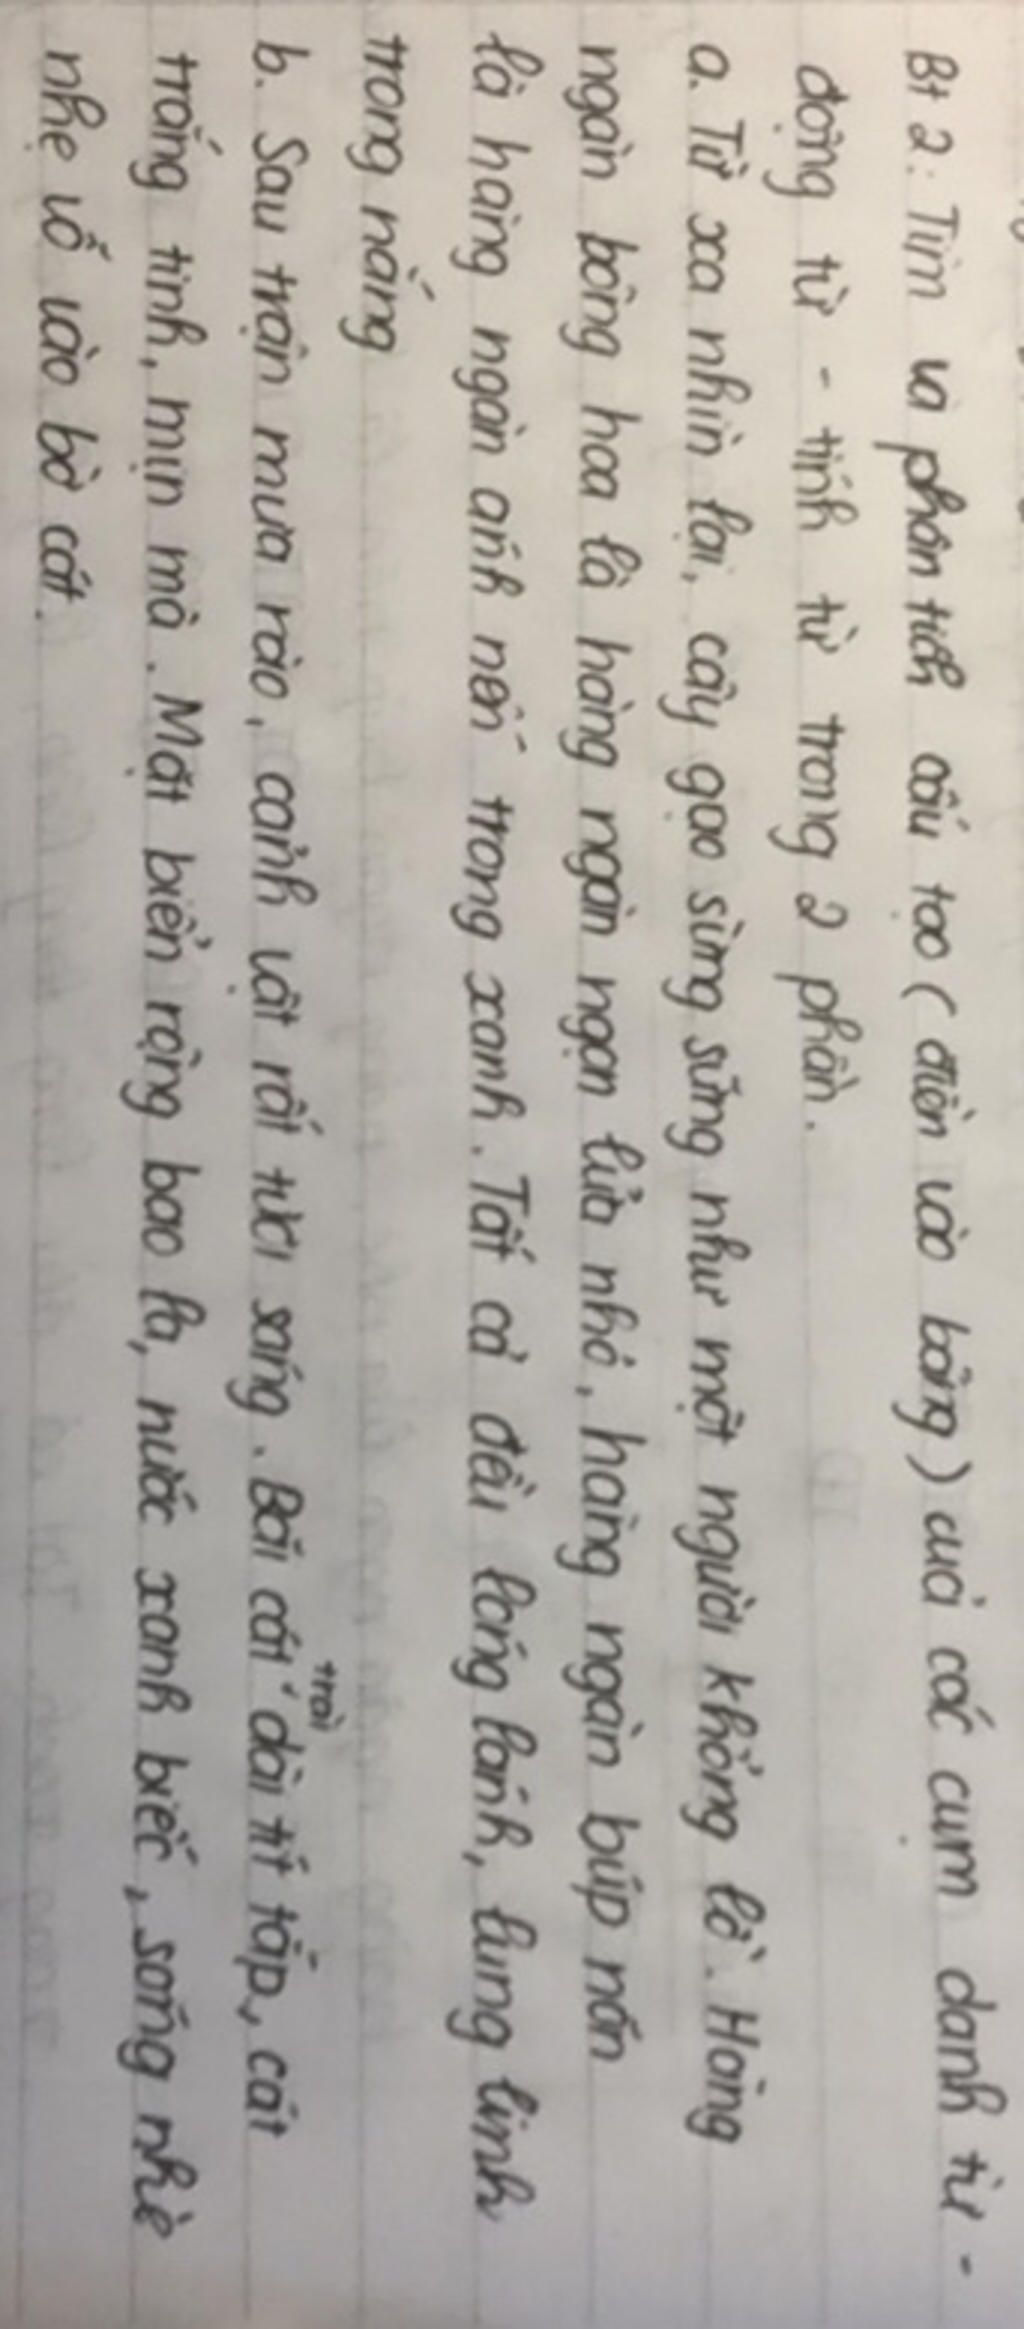 Bt 2: Tìm và phân tích cấu tạo (điền vào bảng) của các cụm danh từ -
động từ - tính từ trong 2 phần.
a. Từ xa nhìn lại, cây gạo sừng sững như một người khổng lồ. Hàng
ngàn bông hoa là hàng ngàn ngọn lửa nhỏ, hàng ngàn búp nõn
là hàng ngàn ánh nến trong xanh. Tất cả đều lóng lánh, lung linh
trong nắng
b. Sau trận mưa rào, cảnh vật rất tươi sáng. Bãi cát trải dài tít tắp, cát
trắng tinh, mịn mà. Mặt biển rộng bao la, nước xanh biếc, sóng nhè
nhẹ vỗ vào bờ cát.